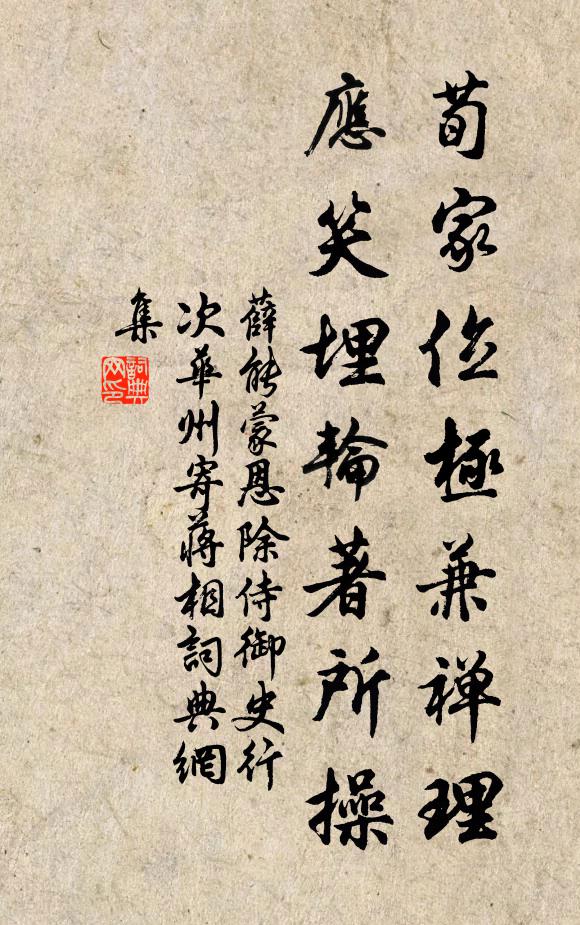 荀家位極兼禪理
應笑埋輪著所操
薛能蒙恩除侍御史行
次華州寄蔣相詞典網
集
詞典
网印